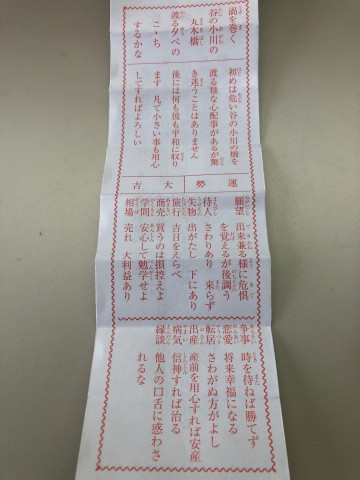 渦を巻く
谷の小川の
丸木橋
渡る夕べの
こゝち
するかな
初めは危い谷の小川の橋を
渡る様な心配事があるが驚
き迷うことはありません
後には何も彼も平和に収り
ます 凡て小さい事も用心
してすればよろしい
運勢大吉
願望 出来兼る様に危惧
を覚えるが後調う
待人 さわりあり 来らず
失物 出がたし 下にあり
旅行 吉日をえらべ
商売 買うのは損控えよ
学問 安心して勉学せよ
相場 売れ 大利益あり
争事 時を待ねば勝てず
恋愛 将来幸福になる
転居 さわがぬ方がよし
出産 産前を用心すれば安産
病気 信神すれば治る
縁談 他人の口舌に惑わさ
れるな